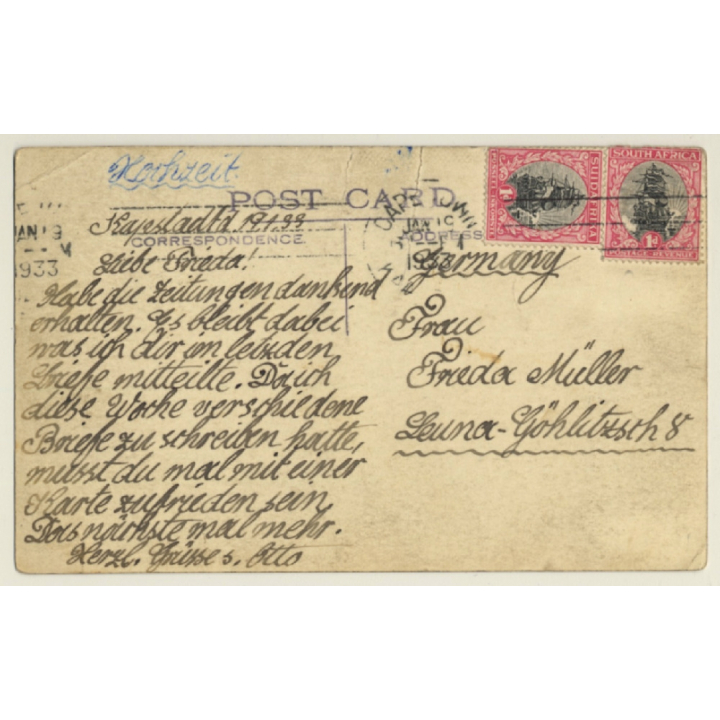 Hochzeit
POST CARD
CORRESPONDENCE
ADDRESS
JAN 19
1933
CAPE TOWN
JAN
SUIDAFRIKA
1D
SOUTH AFRICA
1D
POSTAGE REVENUE
Kapstadt d. 19.1.33
Liebe Frieda!
Habe die Zeitungen dankend
erhalten. Es bleibt dabei
was ich dir im letzden
Briefe mitteilte. Da ich
diese Woche verschildene
Briefe zu schreiben hatte,
musst du mal mit einer
Karte zufrieden sein.
Das nächste mal mehr.
Herzl. Grüsse s. Otto
Germany
Frau
Frieda Müller
Leuna-Göhlitzsch 8